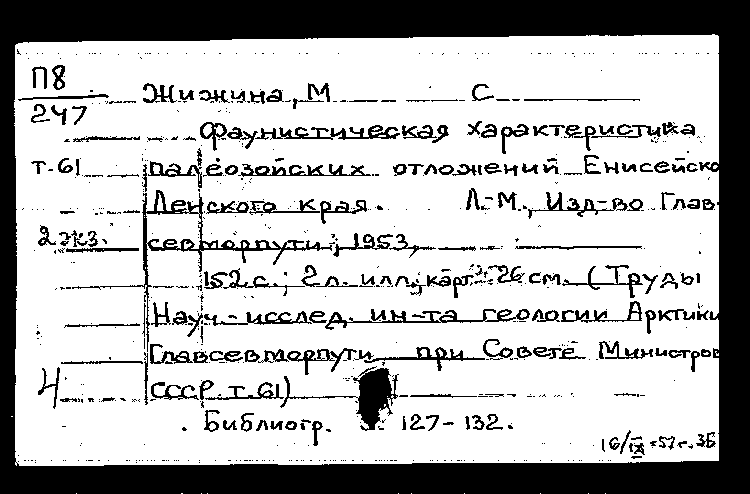 П8
247
Жижина, М С
Фаунистическая характеристика
т.61 палеозойских отложений Енисейско
Ленского края. Л.-М., Изд-во Глав-
2 экз. севморпути, 1953,
152 с.; 2 л. илл., карт. 26 см. (Труды
Науч.-исслед. ин-та геологии Арктики
Главсевморпути при Совете Министров
4 СССР. т.61)
Библиогр. 127-132.
16/IX-57г.